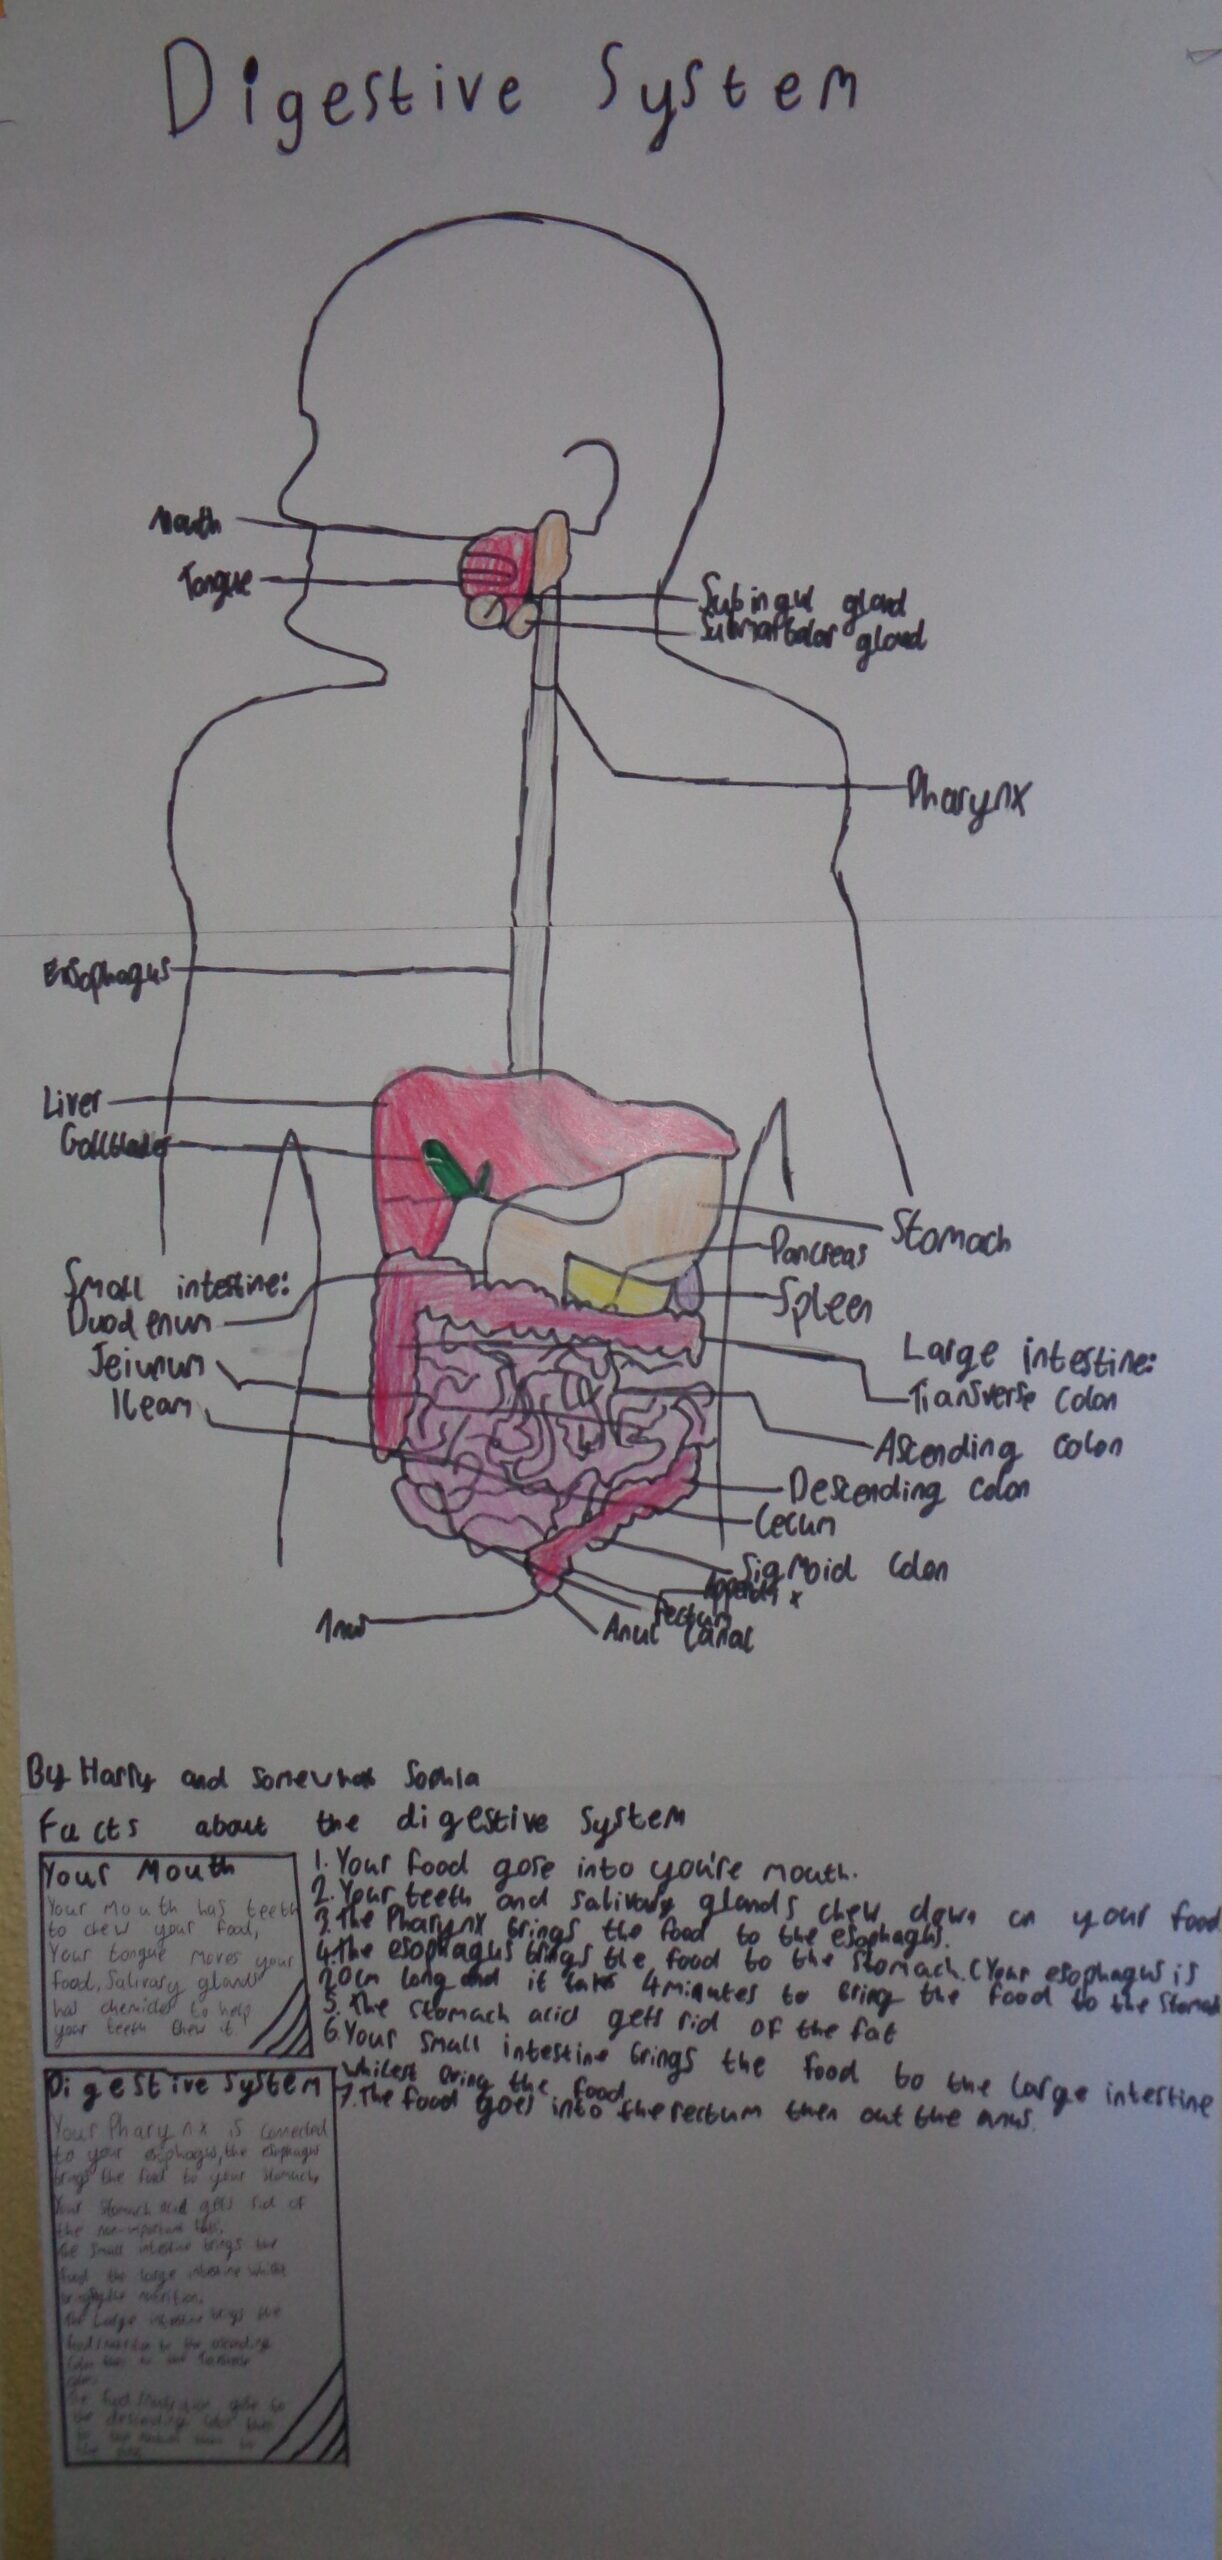 Digestive System
Mouth
Tongue
Subingul gland
gland
Pharynx
Liver
Stomach
Pancreas
Spleen
Small intestine:
Duodenum
Jeiunum
Ileam
Large intestine:
Transverse Colon
Ascending Colon
Descending Colon
Cecum
Sigmoid Colon
Appendix
rectum
Anul Canal
By Harry and somewhat Sophia
Facts about the digestive system
Your Mouth
Your mouth has teeth
to chew your food,
Your tongue moves your
food, Salivary glands
has chemicles to help
your teeth chew it.
1. Your food gose into you're mouth.
2. Your teeth and salivary glands chew down on your food
3. The Pharynx brings the food to the esophagus.
4. The esophagus brings the food to the stomach. (Your esophagus is
20cm long and it takes 4 minutes to bring the food to the stomach
5. The stomach acid gets rid of the fat
6. Your small intestine brings the food to the large intestine
whilest the food.
7. The food goes into the rectum then out the anus.
Digestive system
Your Pharynx is connected
to your esophagus, the esophagus
brings the food to your stomach,
Your stomach acid gets rid of
the non-important
The small intestine brings the
food the large intestine whilst
the nutrition.
The Large intestine brings the
to the ascending
Colon then to the Transverse
The food goes to
the descending colon then